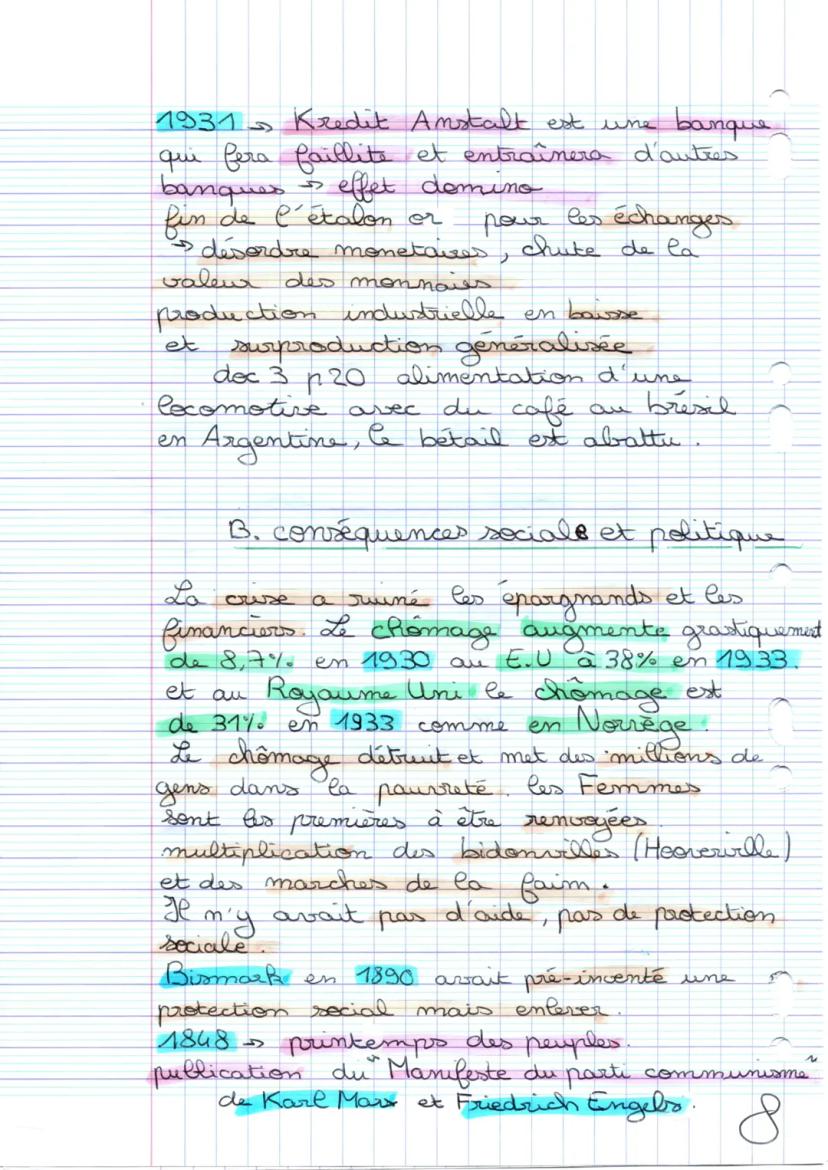 1931 → Kredit Anstalt est une banque
qui fera faillite et entraînera d'autres
banques → effet domino
fin de l'étalon or pour les échanges
→ désordre monetaires, chute de la
valeur des monnaies
production industrielle en baisse
et surproduction généralisée
doc 3 p 20 alimentation d'une
locomotive avec du café au brésil
en Argentine, le bétail est abattu.
B. conséquences sociale et politique
La crise a ruiné les épargnands et les
financiers. Le chômage augmente grastiquement
de 8,7% en 1930 au E.U à 38% en 1933.
et au Royaume Uni le chômage est
de 31% en 1933 comme en Norvège.
Le chômage détruit et met des millions de
gens dans la pauvreté. les Femmes
sont les premières à être renvoyées
multiplication des bidonvilles (Hooverville)
et des marches de la faim.
Il n'y avait pas d'aide, pas de protection
sociale.
Bismark en 1890 avait pré-inventé une
protection social mais enlever.
1848 → printemps des peuples.
publication du "Manifeste du parti communisme"
de Karl Marx et Friedrich Engels.
8